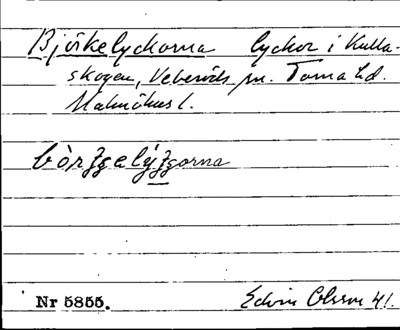 Björkelyckorna lyckor i Kulla-
skogen, Veberöds sn. Torna hd.
Malmöhus l.
Nr 5855. Edvin Olsson 41.